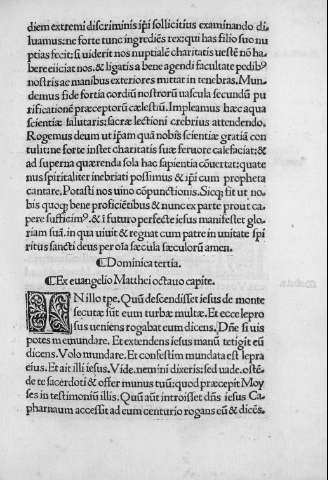 diem extremi discriminis ip̄i sollicitius examinando di
luamus: ne forte tunc ingrediēs rex: qui has filio suo nu
ptias fecit: si uiderit nos nuptialē charitatis uestē nō ha
bere eiiciat nos. & ligatis a bene agendi facultate pedibꝰ
nostris ac manibus exteriores mittat in tenebras. Mun
demus fide fortia cordiū nostrorū uascula secundū pu
rificationē præceptorū cælestiū. Impleamus hæc aqua
scientiæ salutaris: sacræ lectioni crebrius attendendo.
Rogemus deum ut ip̄am quā nobis scientiæ gratiā con
tulit: ne forte instet charitatis suæ feruore calefaciat: &
ad superna quærenda sola hac sapientia cōuertat: quate
nus spiritaliter inebriati possimus & ip̄i cum propheta
cantare. Potasti nos uino cōpunctionis. Sicqꝫ fit ut no
bis quoqꝫ bene proficiētibus & nunc ex parte prout ca
pere sufficimꝰ. & ī futuro perfecte iesus manifestet glo
riam suā. in qua uiuit & regnat cum patre in unitate spi
ritus sancti deus per oīa sæcula sæculorū amen.
¶ Dominica tertia.
¶ Ex euangelio Matthei octauo capite.
IN illo tp̄e. Quū descendisset iesus de monte
secutæ sūt eum turbæ multæ. Et ecce lepro
sus ueniens rogabat eum dicens. Dn̄e si uis
potes me mundare. Et extendens iesus manū tetigit eū
dicens. Volo mundare. Et confestim mundata est lepra
eius. Et ait illi iesus. Vide. nemini dixeris: sed uade. ostē
de te sacerdoti & offer munus tuū: quod præcepit Moy
ses in testimoniū illis. Quū aūt introisset dn̄s iesus Ca
pharnaum accessit ad eum centurio rogans eū & dicēs.